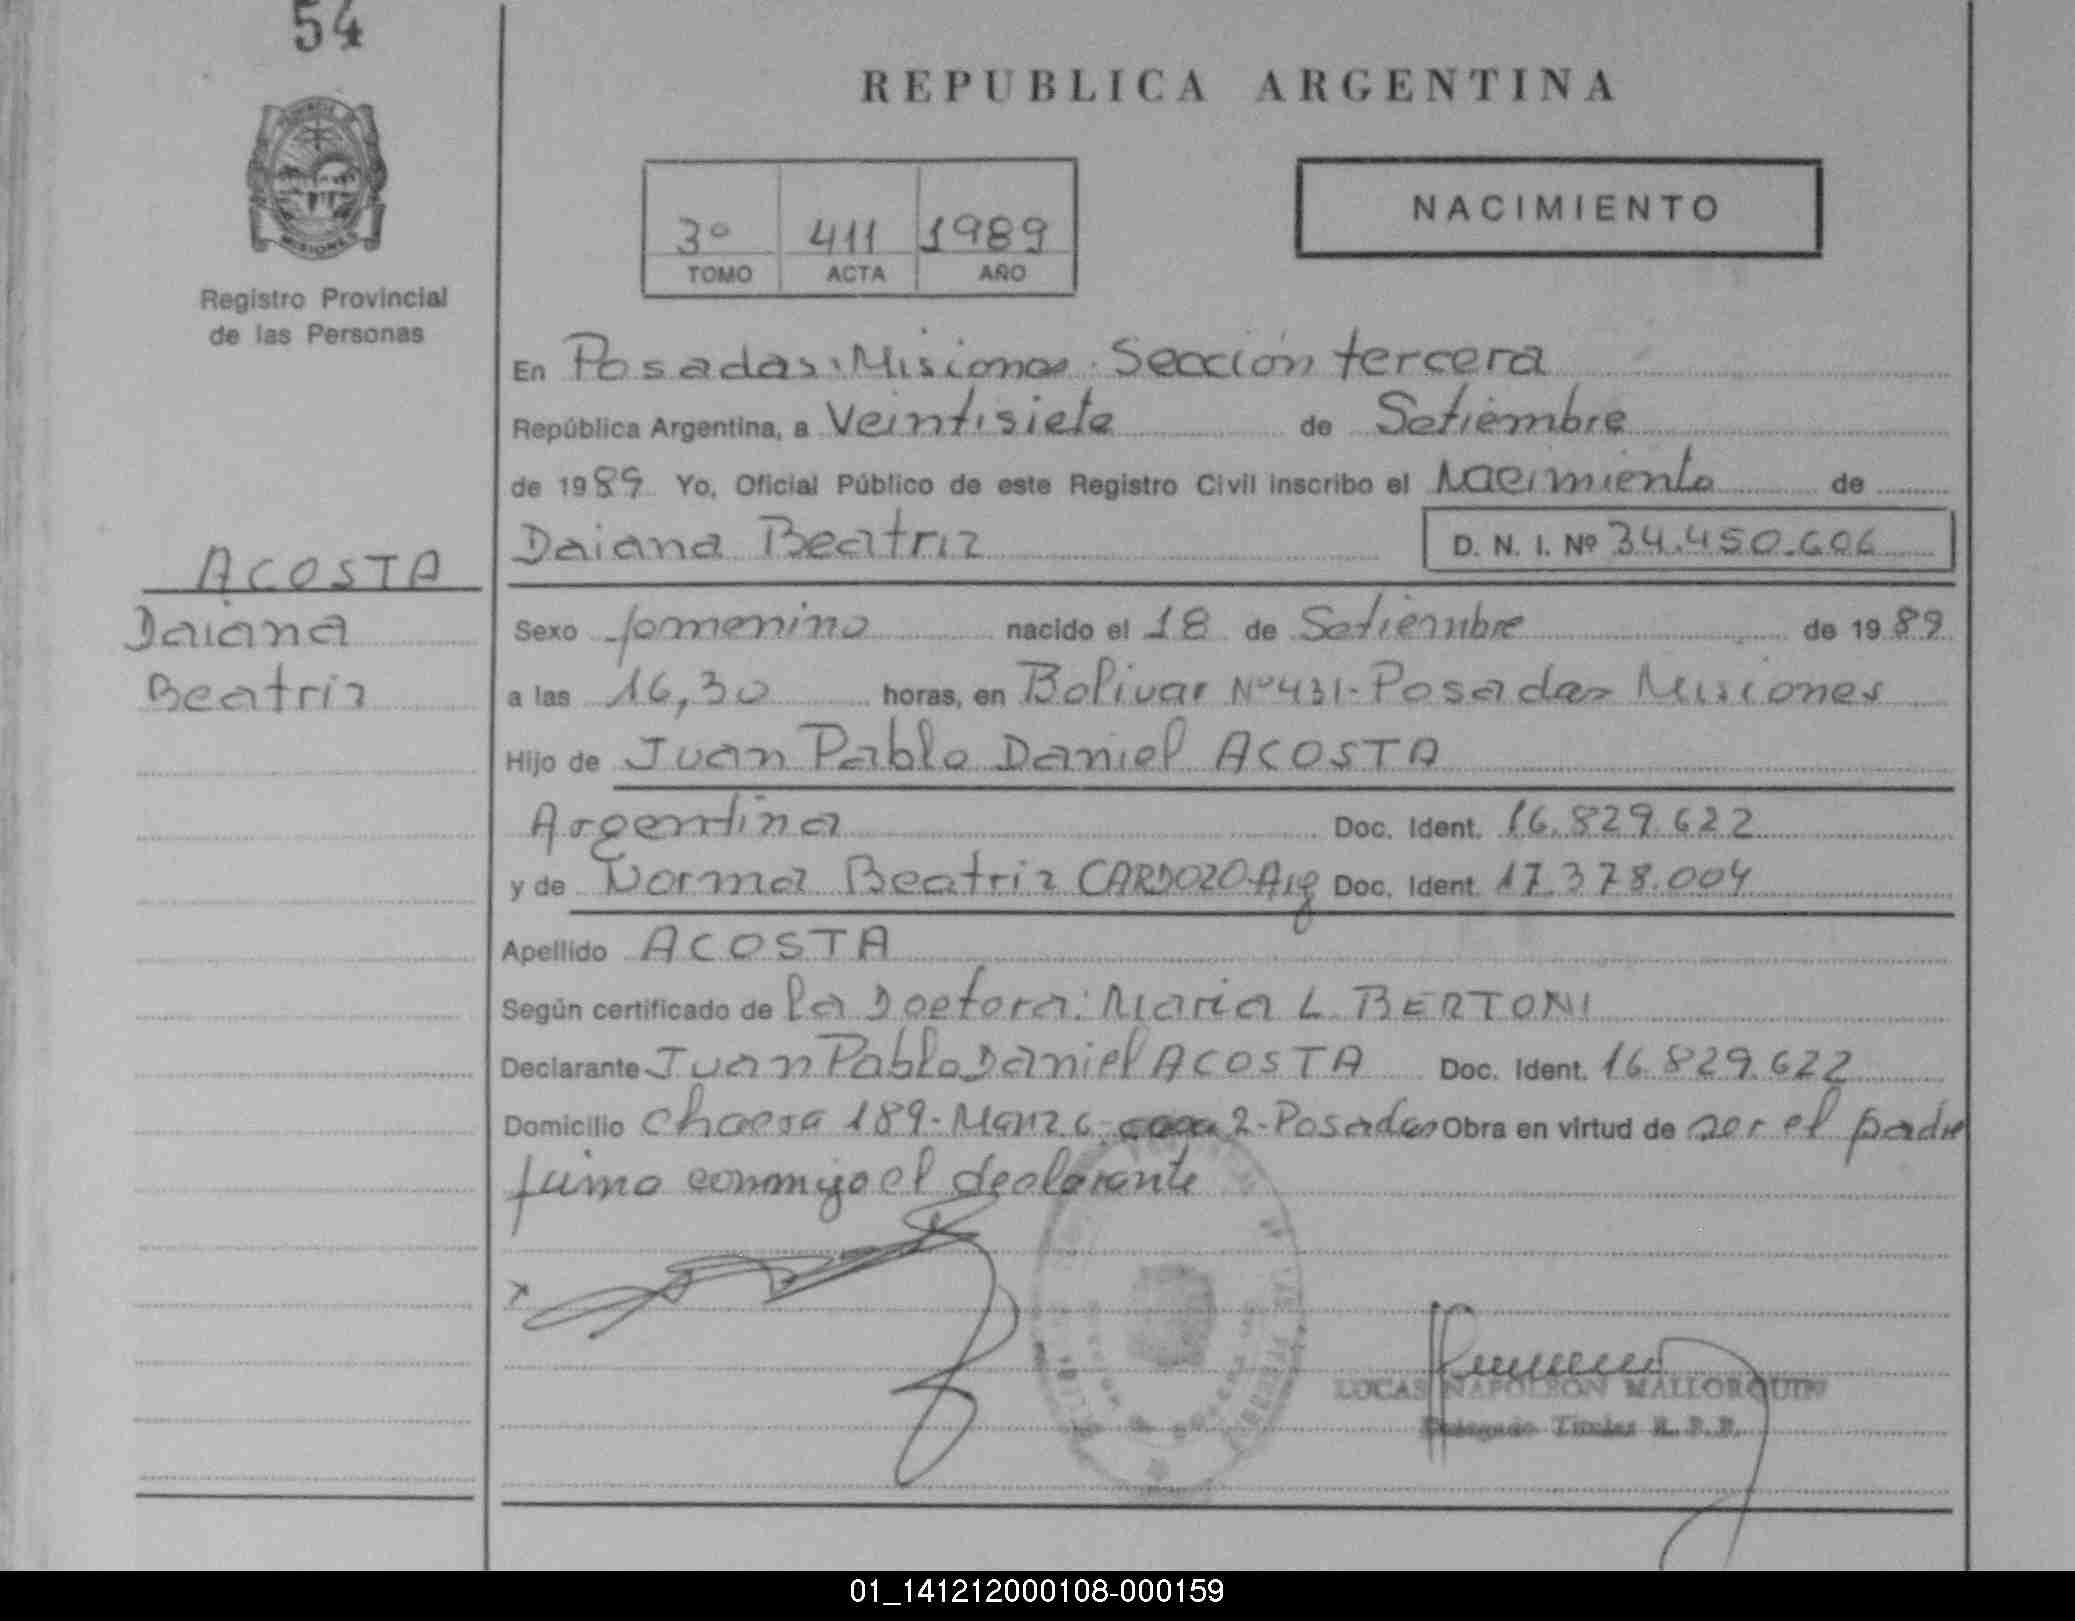 54
REPUBLICA ARGENTINA
MISIONES
Registro Provincial
de las Personas
3º 411 1989
TOMO ACTA AÑO
NACIMIENTO
En Posadas, Misiones. Sección tercera
República Argentina, a Veintisiete de Setiembre
de 1989 Yo, Oficial Público de este Registro Civil inscribo el Nacimiento de
Daiana Beatriz D. N. I. Nº 34.450.606
ACOSTA
Daiana
Beatriz
Sexo femenino nacido el 18 de Setiembre de 1989
a las 16,30 horas, en Bolivar Nº 431- Posadas Misiones
Hijo de Juan Pablo Daniel ACOSTA
Argentina Doc. Ident. 16.829.622
y de Norma Beatriz CARDOZO-Arg Doc. Ident. 17.378.004
Apellido ACOSTA
Según certificado de la Doctora: Maria L. BERTONI
Declarante Juan Pablo Daniel ACOSTA Doc. Ident. 16.829.622
Domicilio Chacra 189-Manz 6, casa 2-Posadas Obra en virtud de ser el padre
firmo conmigo el declarante
x
LUCAS NAPOLEON MALLORQUIN
Delegado Titular R. P. P.
01_141212000108-000159